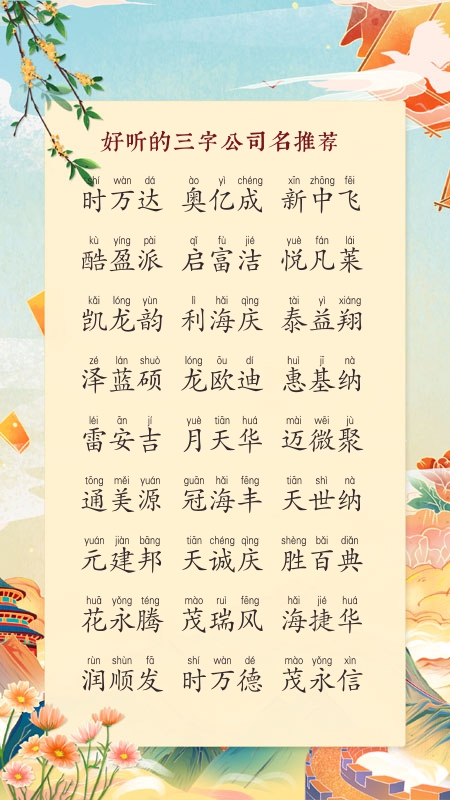 好听的三字公司名推荐
shí wàn dá ào yì chéng xīn zhōng fēi
时万达 奥亿成 新中飞
kù yíng pài qǐ fù jié yuè fán lái
酷盈派 启富洁 悦凡莱
kǎi lóng yùn lì hǎi qìng tài yì xiáng
凯龙韵 利海庆 泰益翔
zé lán shuò lóng ōu dí huì jī nà
泽蓝硕 龙欧迪 惠基纳
léi ān jí yuè tiān huá mài wēi jù
雷安吉 月天华 迈微聚
tōng měi yuán guān hǎi fēng tiān shì nà
通美源 冠海丰 天世纳
yuán jiàn bāng tiān chéng qìng shèng bǎi diǎn
元建邦 天诚庆 胜百典
huā yǒng téng mào ruì fēng hǎi jié huá
花永腾 茂瑞风 海捷华
rùn shùn fā shí wàn dé mào yǒng xìn
润顺发 时万德 茂永信